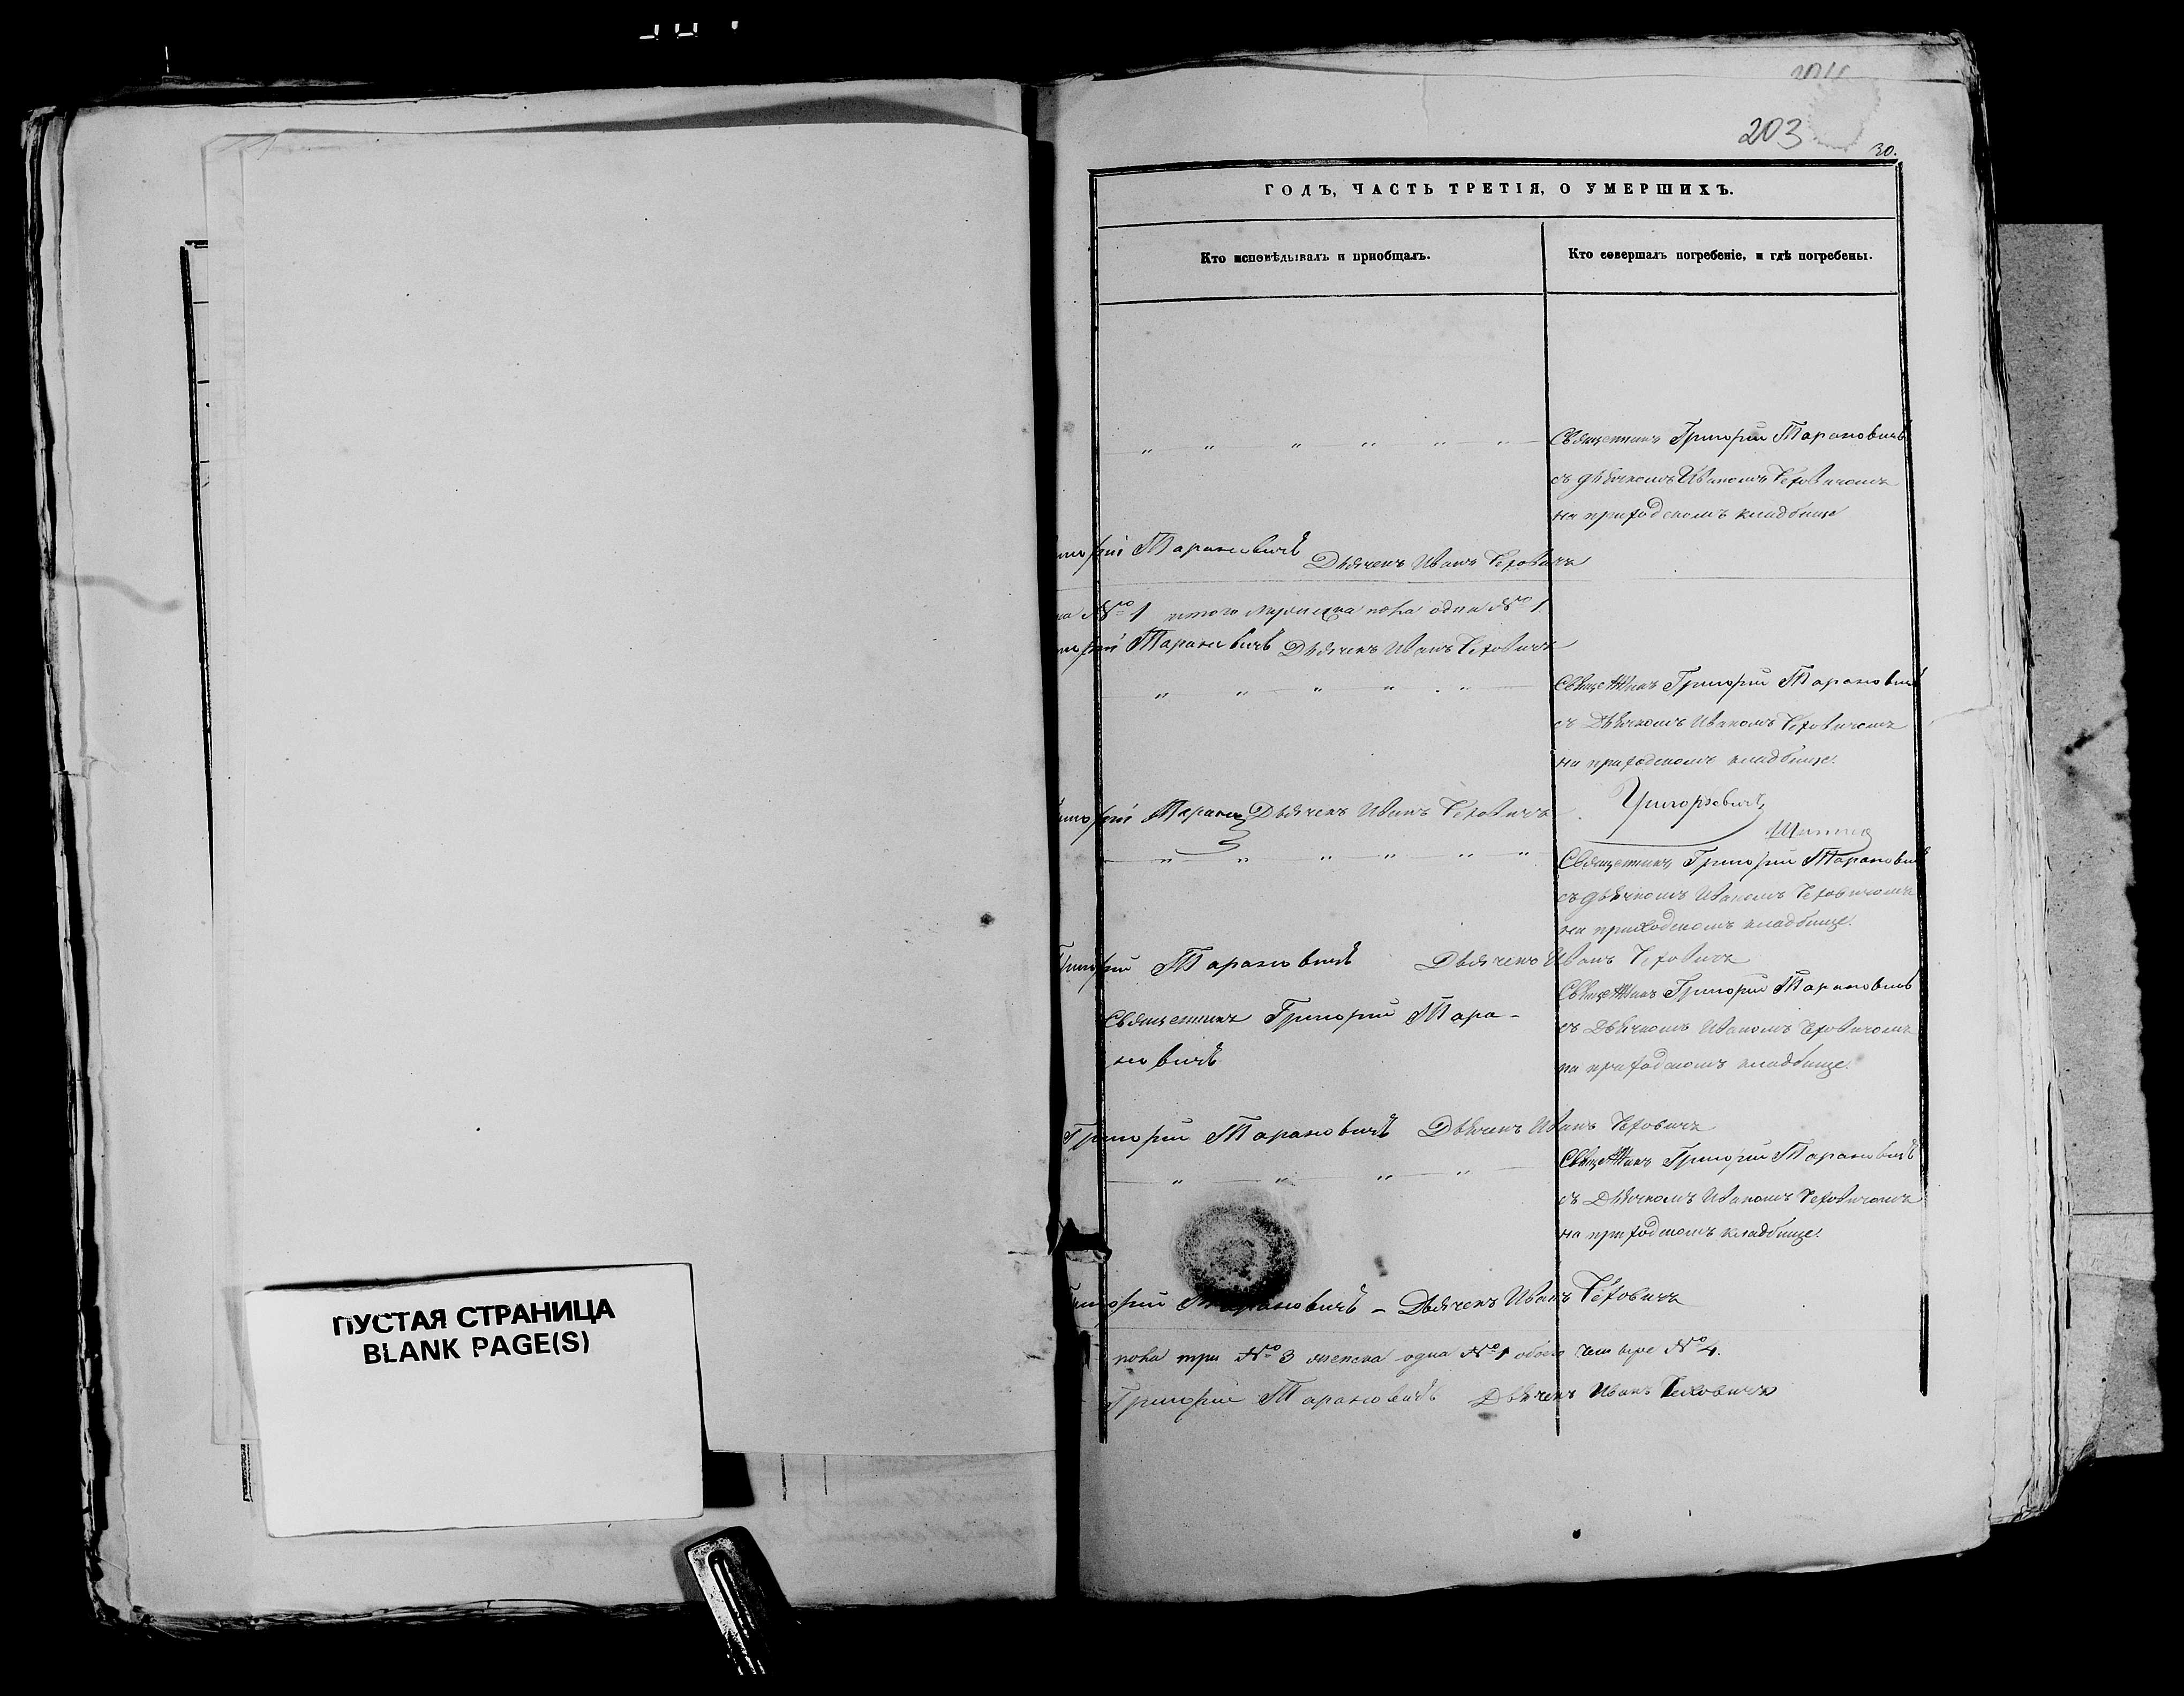 203
30.
ГОДЪ, ЧАСТЬ ТРЕТІЯ, О УМЕРШИХЪ.
Кто исповѣдывалъ и пріобщалъ.
Кто совершалъ погребеніе, и гдѣ погребены.
Священникъ Григорій Тарановичъ
съ дьячкомъ Иваномъ Чеховичемъ
на приходскомъ кладбище
Тарановичъ Дьячекъ Иванъ Чеховичъ
№ 1 итого мужеска пола одна № 1.
Тарановичъ Дьячекъ Иванъ Чеховичъ
Священникъ Григорій Тарановичъ
съ Дьячкомъ Иваномъ Чеховичемъ
на приходскомъ кладбище.
Дьячекъ Иванъ Чеховичъ
Священникъ Григорій Тарановичъ
съ дьячкомъ Иваномъ Чеховичемъ
на приходскомъ кладбище.
Григорій Тарановичъ Дьячекъ Иванъ Чеховичъ
Священникъ Григорій Тара-
новичъ
Священникъ Григорій Тарановичъ
съ Дьячкомъ Иваномъ Чеховичемъ
на приходскомъ кладбище.
Григорій Тарановичъ Дьячекъ Иванъ Чеховичъ
Священникъ Григорій Тарановичъ
съ Дьячкомъ Иваномъ Чеховичемъ
на приходскомъ кладбище.
Григорій Тарановичъ – Дьячекъ Иванъ Чеховичъ
пола три № 3 женска одна № 1 обоего четверо № 4.
Григорій Тарановичъ Дьячекъ Иванъ Чеховичъ
ПУСТАЯ СТРАНИЦА
BLANK PAGE(S)